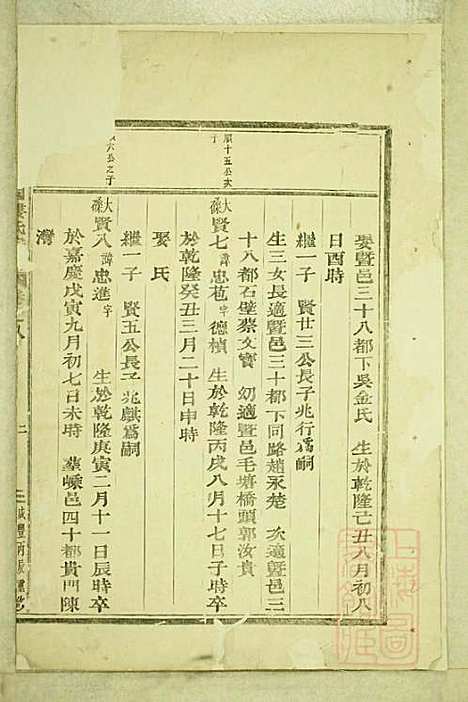 娶暨邑三十八都下吳金氏 生於乾隆己丑八月初八
日酉時
繼一子 賢廿三公長子兆行爲嗣
生三女長適暨邑三十都下同路趙永楚 次適暨邑三
十八都石壁蔡文寶 幼適暨邑毛塘橋頭郭汝貴
大
賢七 諱忠苞 字德楨 生於乾隆丙戌八月十七日子時卒
於乾隆癸丑三月二十日申時
娶氏
繼一子 賢五公長子兆麒爲嗣
大
賢八 諱忠進 字 生於乾隆庚寅二月十一日辰時卒
於嘉慶戊寅九月初七日未時 葬嵊邑四十都貴門陳
灣
十五公次
子
六公之子
咸豐丙辰